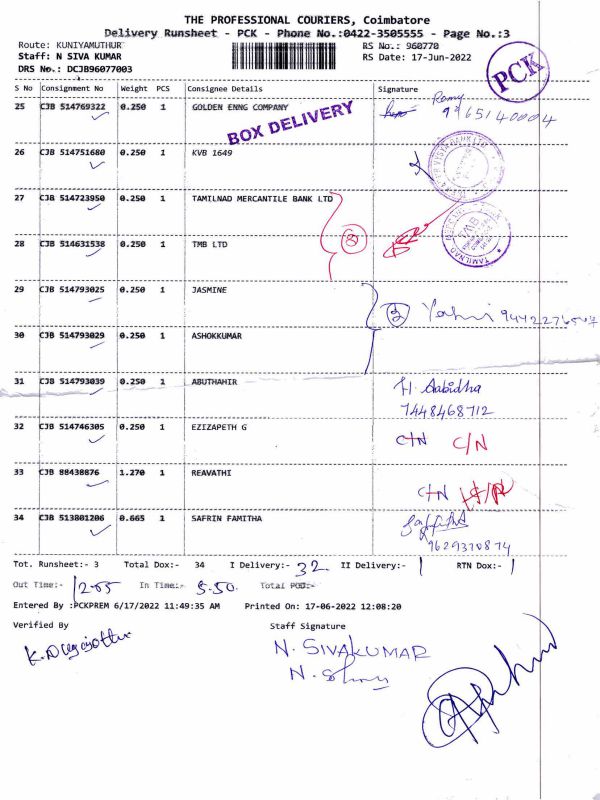 THE PROFESSIONAL COURIERS, Coimbatore
Delivery Runsheet - PCK - Phone No.:0422-3505555 - Page No.:3
Route: KUNIYAMUTHUR RS No.: 960770
Staff: N SIVA KUMAR RS Date: 17-Jun-2022
DRS No.: DCJB96077003
PCK
S No Consignment No Weight PCS Consignee Details Signature
25 CJB 514769322 0.250 1 GOLDEN ENNG COMPANY Ramy
BOX DELIVERY
26 CJB 514751680 0.250 1 KVB 1649
27 CJB 514723950 0.250 1 TAMILNAD MERCANTILE BANK LTD
28 CJB 514631538 0.250 1 TMB LTD
29 CJB 514793025 0.250 1 JASMINE
30 CJB 514793029 0.250 1 ASHOKKUMAR
31 CJB 514793039 0.250 1 ABUTHAHIR H. Aabidha
7448468712
32 CJB 514746305 0.250 1 EZIZAPETH G C/N C/N
33 CJB 88438876 1.270 1 REAVATHI C/N
34 CJB 513801206 0.665 1 SAFRIN FAMITHA
9629370874
Tot. Runsheet:- 3 Total Dox:- 34 I Delivery:- 32 II Delivery:- RTN Dox:-
Out Time:- 12.05 In Time:- 5.50 Total POD:-
Entered By :PCKPREM 6/17/2022 11:49:35 AM Printed On: 17-06-2022 12:08:20
Verified By Staff Signature
N. SIVAKUMAR